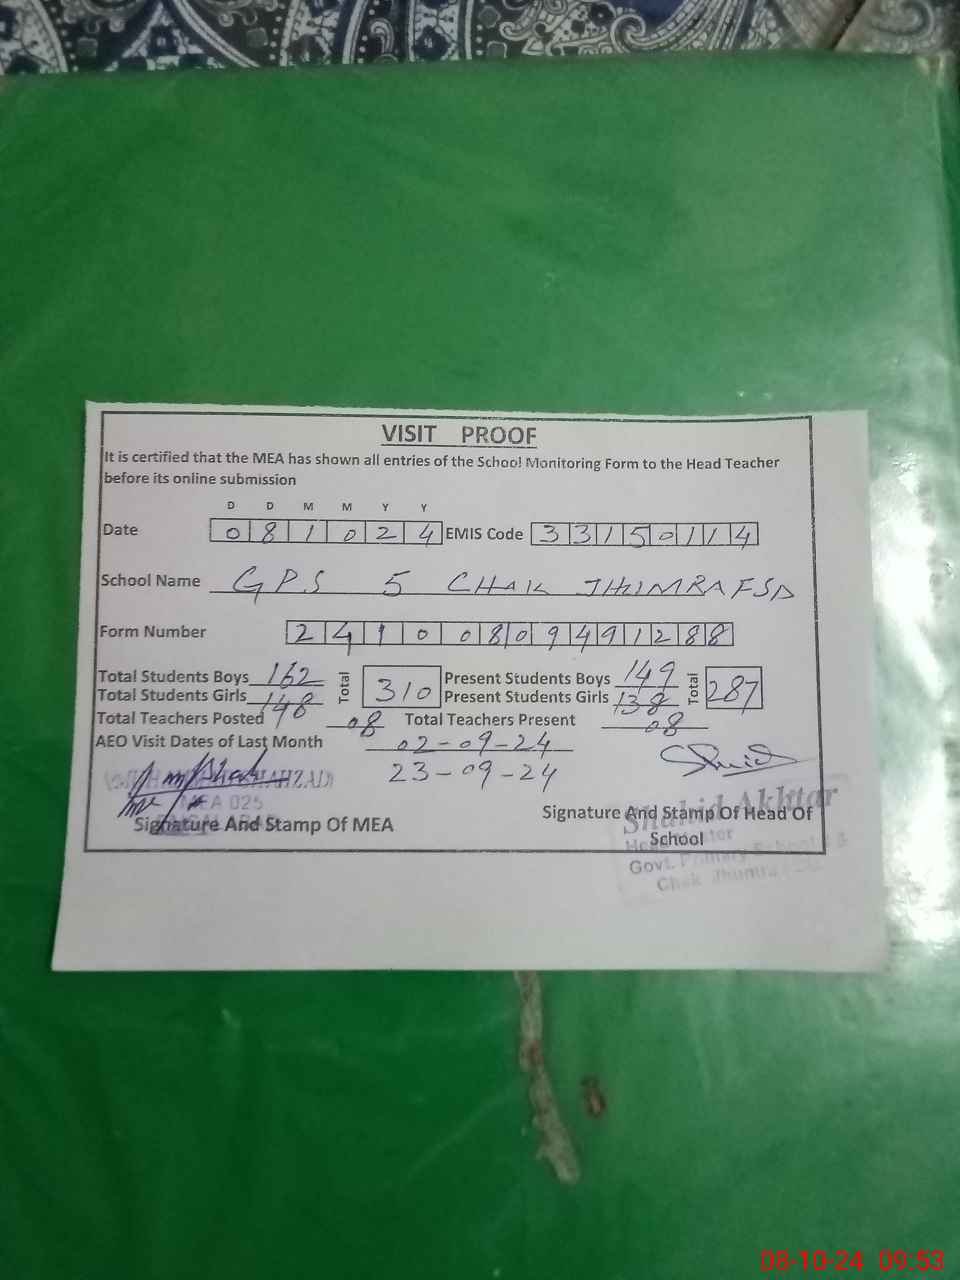 VISIT PROOF
It is certified that the MEA has shown all entries of the School Monitoring Form to the Head Teacher
before its online submission
D D M M Y Y
Date 0 8 1 0 2 4 EMIS Code 3 3 1 5 0 1 1 4
School Name GPS 5 CHAK JHUMRA FSD
Form Number 2 4 1 0 0 8 0 9 4 9 1 2 8 8
Total Students Boys 162 Total 310 Present Students Boys 149 Total 287
Total Students Girls 148 Present Students Girls 138
Total Teachers Posted 08 Total Teachers Present 08
AEO Visit Dates of Last Month 02-09-24
23-09-24
SHAHZAD
MEA 025
Signature And Stamp Of MEA
Signature And Stamp Of Head Of
School
Shahid Akhtar
Head Master
Govt. Primary School
Chak Jhumra
08-10-24 09:53